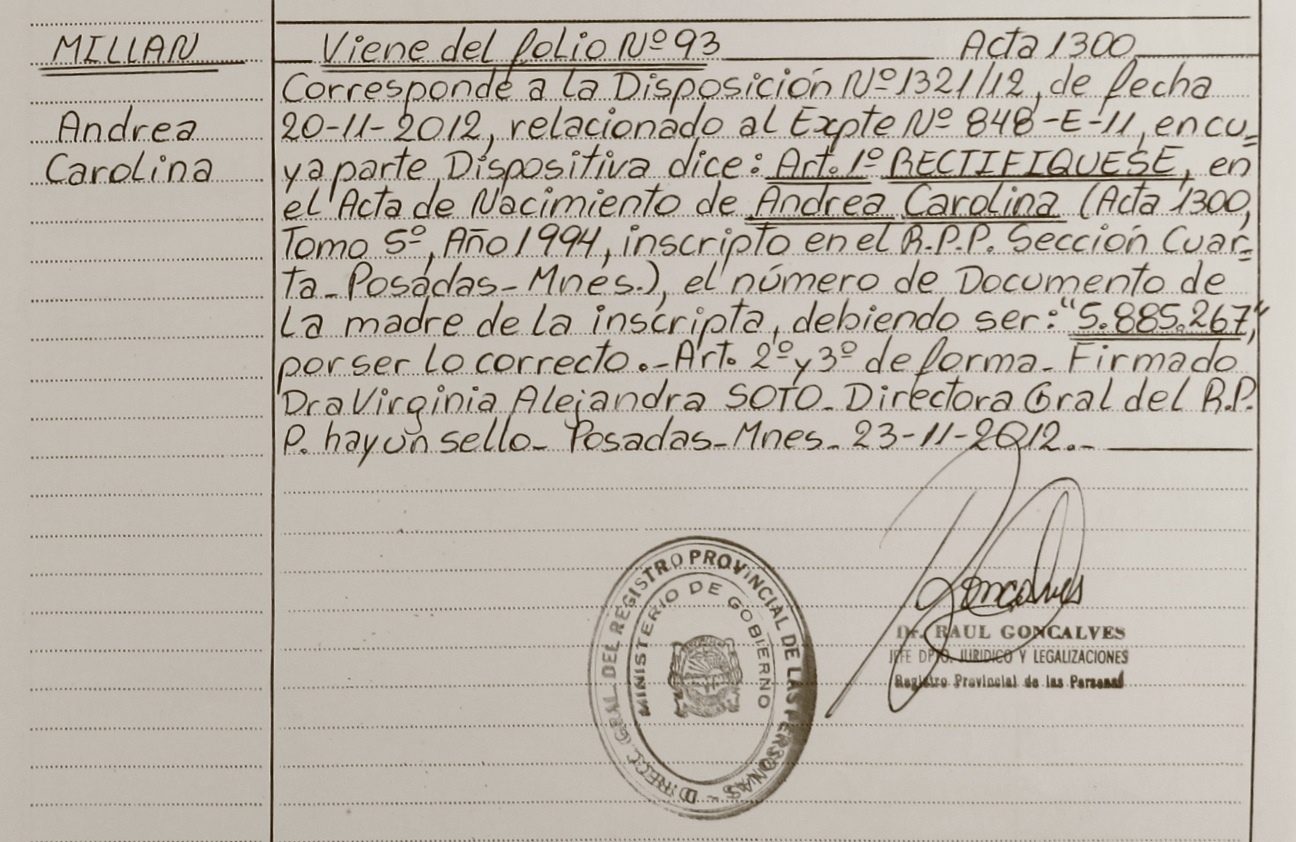 MILLAN
Andrea
Carolina
Viene del folio Nº 93 Acta 1300
Corresponde a la Disposición Nº 1321/12, de fecha
20-11-2012, relacionado al Expte Nº 848-E-11, en cu-
ya parte Dispositiva dice: Art. 1º RECTIFIQUESE, en
el Acta de Nacimiento de Andrea Carolina (Acta 1300,
Tomo 5º, Año 1994, inscripto en el R.P.P. Sección Cuar-
ta - Posadas - Mnes.), el número de Documento de
la madre de la inscripta, debiendo ser: "5.885.267",
por ser lo correcto.- Art. 2º y 3º de forma - Firmado
Dra Virginia Alejandra SOTO - Directora Gral del R.P.
P. hay un sello - Posadas - Mnes - 23-11-2012.-
Goncalves
Dr. RAUL GONCALVES
JEFE DPTO. JURIDICO Y LEGALIZACIONES
Registro Provincial de las Personas
DIRECC. GRAL. DEL REGISTRO PROVINCIAL DE LAS PERSONAS -
MINISTERIO DE GOBIERNO